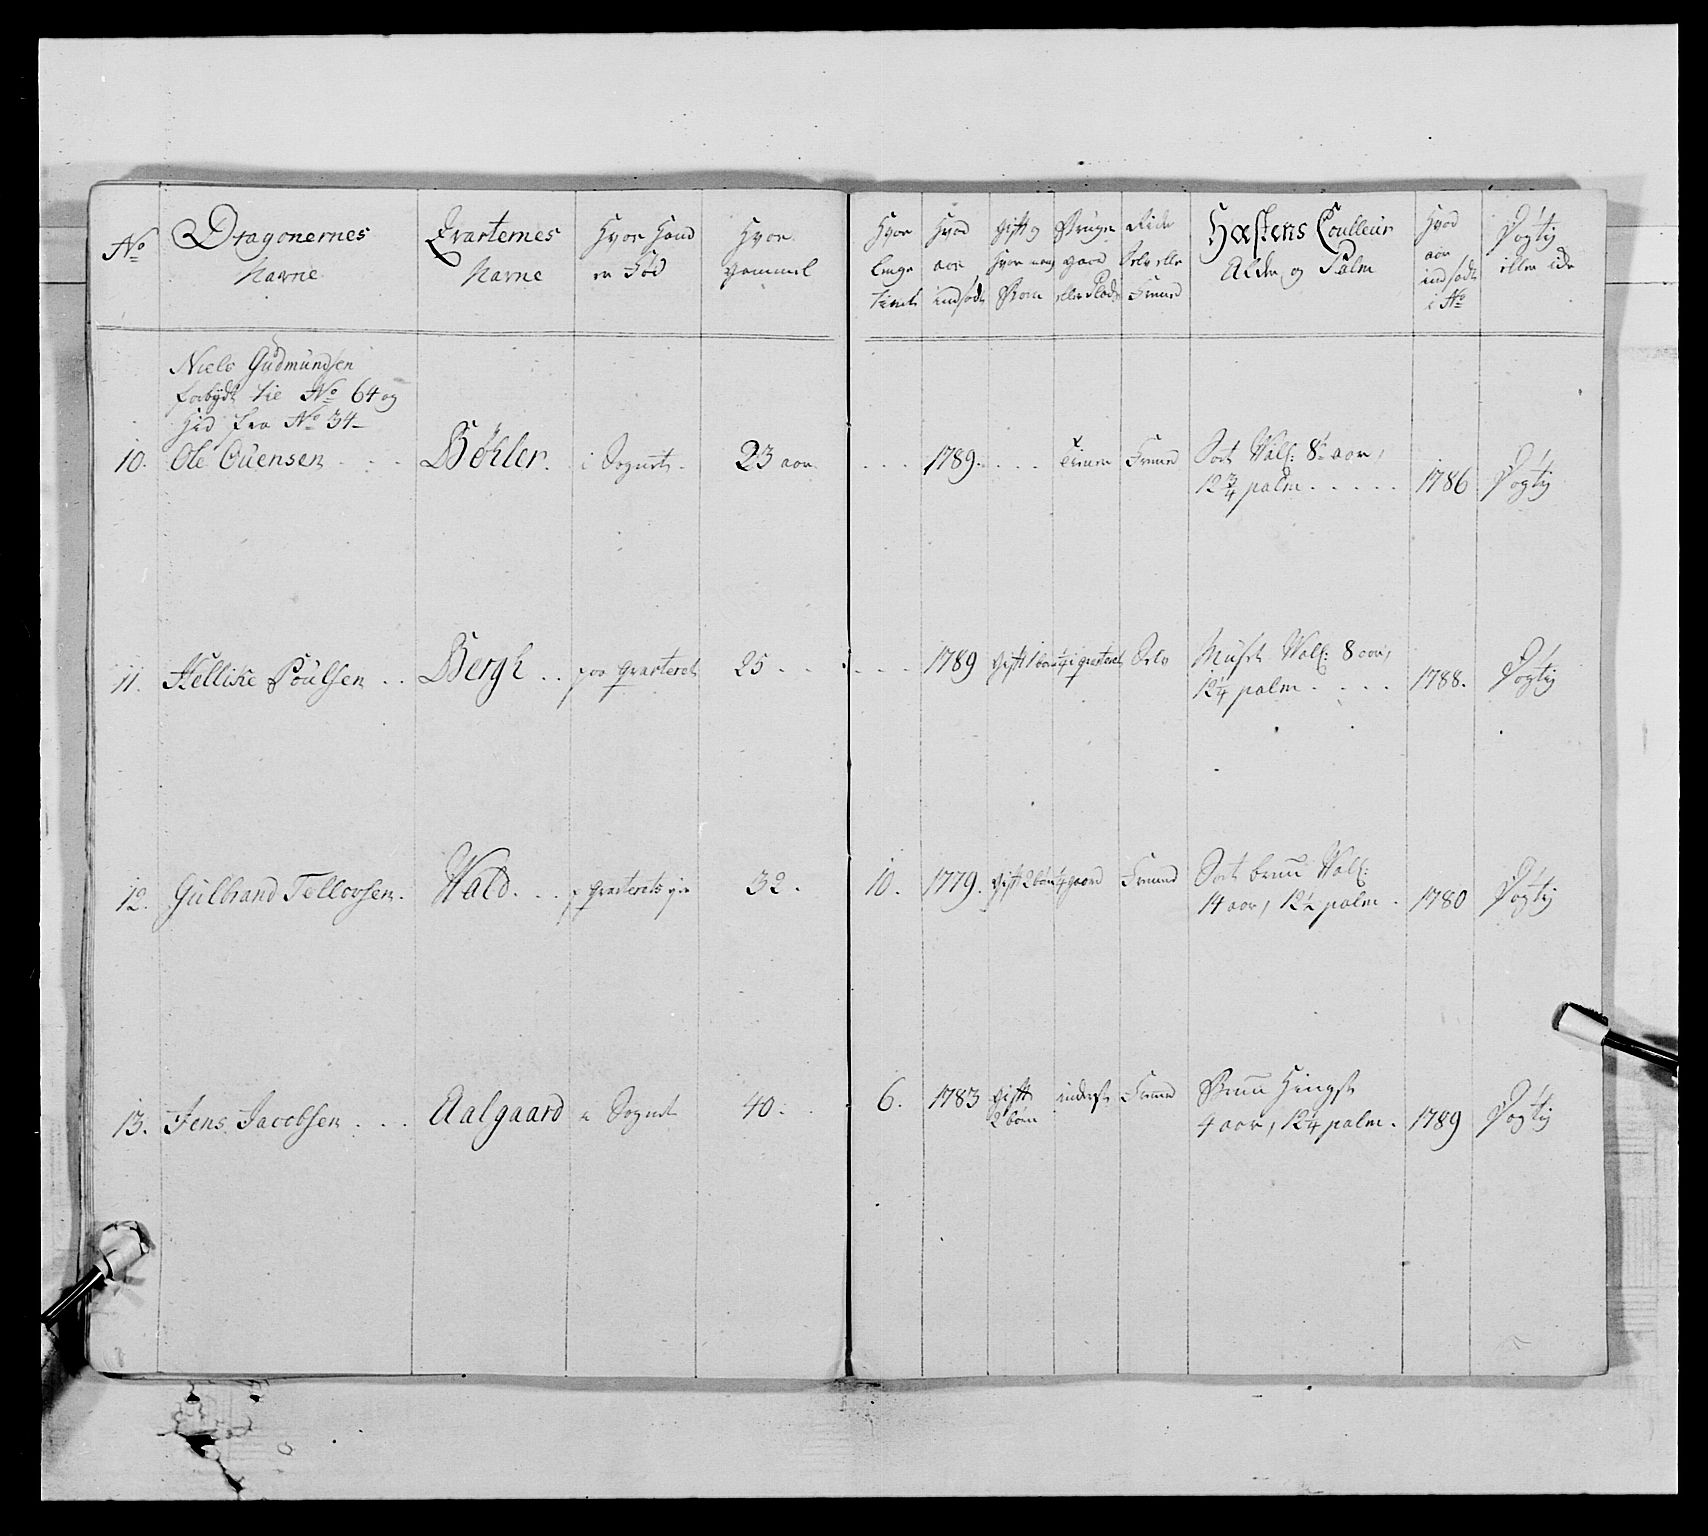 No
Dragonernes
Navne
Qvarternes
Navne
Hvor Hand
er Fød
Hvor
gammel
Hvor
lenge
tient
Hvad
aar
indsødt
Gift og
hvor mang
Børn
Bruger
gaard
eller Plads
Ride
Selv elle
Fremed
Hæstens Coulleur
Alder og Palm
Hvad
aar
indsødt
i No
Døgtig
eller ick
Niels Gudmundsen
forbÿdt til No 64 og
hid fra No 34
10. Ole Ouensen Bøhler. i Sognet. 23 aar. 1789. Tiener Fremed Sort Vall: 8t aar,
12 3/4 palm 1786 Døgtig
11. Hellike Poulsen Bergh paa Qvarteret 25 1789 Gift 1 barn 1/4 i Qvarteret Selv Muset Vall: 8 aar,
12 1/4 palm 1788. Døgtig
12. Gulbrand Tellovsen. Wald. p Qvarterets 32. 10. 1779. Gift 2 børn 1/4 gaard Fremed Sort brun Vall:
14 aar, 12 1/2 palm. 1780 Døgtig
13. Jens Jacobsen Aalgaard i Sognet 40. 6. 1783 Gift
2 børn inderst Fremed Brun Hingst
4 aar, 12 1/4 palm. 1789 Døgtig